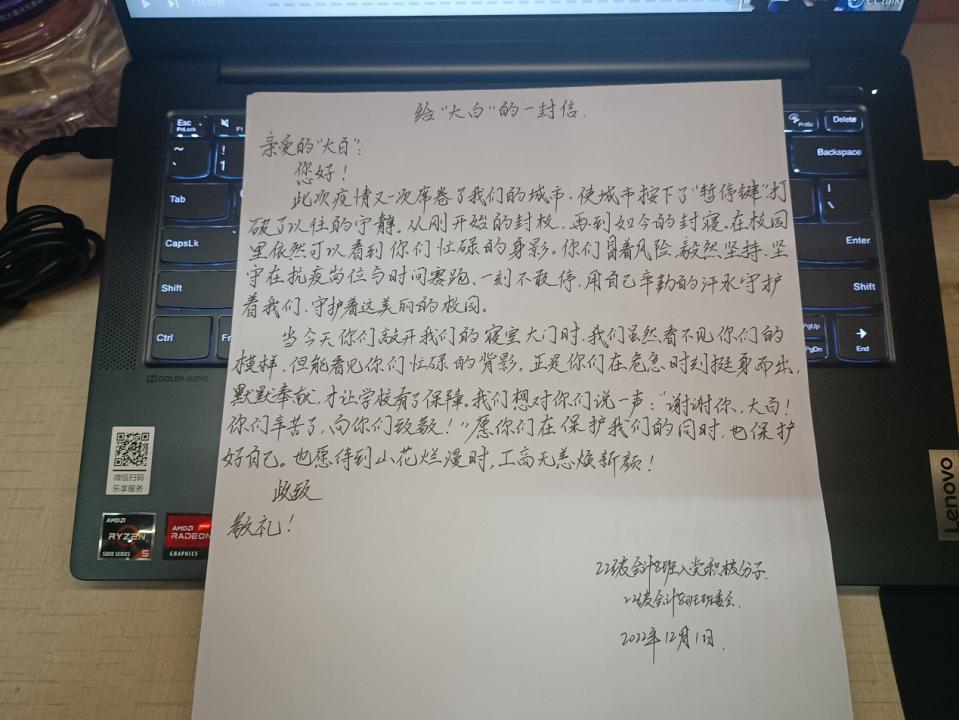 7:03:55.97
CCtalk
给“大白”的一封信.
亲爱的“大白”:
您好!
此次疫情又一次席卷了我们的城市,使城市按下了“暂停键”打
破了以往的宁静。从刚开始的封校,再到如今的封寝。在校园
里依然可以看到你们忙碌的身影。你们冒着风险,毅然坚持,坚
守在抗疫岗位与时间赛跑、一刻不敢停,用自己辛勤的汗水守护
着我们、守护着这美丽的校园。
当今天你们敲开我们的寝室大门时,我们虽然看不见你们的
模样,但能看见你们忙碌的背影。正是你们在危急时刻挺身而出,
默默奉献,才让学校有了保障。我们想对你们说一声:“谢谢你、大白!
你们辛苦了,向你们致敬!”愿你们在保护我们的同时,也保护
好自己。也愿待到山花烂漫时,工商无恙焕新颜!
此致
敬礼!
22级会计8班入党积极分子.
22级会计8班班委会.
2022年12月1日.
Esc
FnLock
F1
~
!
1
Tab
CapsLk
Shift
Ctrl
PrtSc
Delete
Backspace
|
\
Enter
Shift
PgUp
PgDn
End
DOLBY AUDIO
微信扫码
乐享服务
AMD
RYZEN
5
5000 SERIES
AMD
RADEON
GRAPHICS
Lenovo